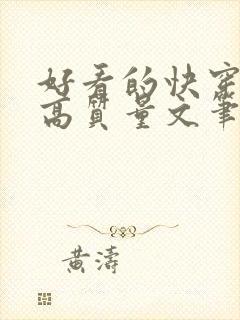 好看的快穿
高质量文笔
黄涛